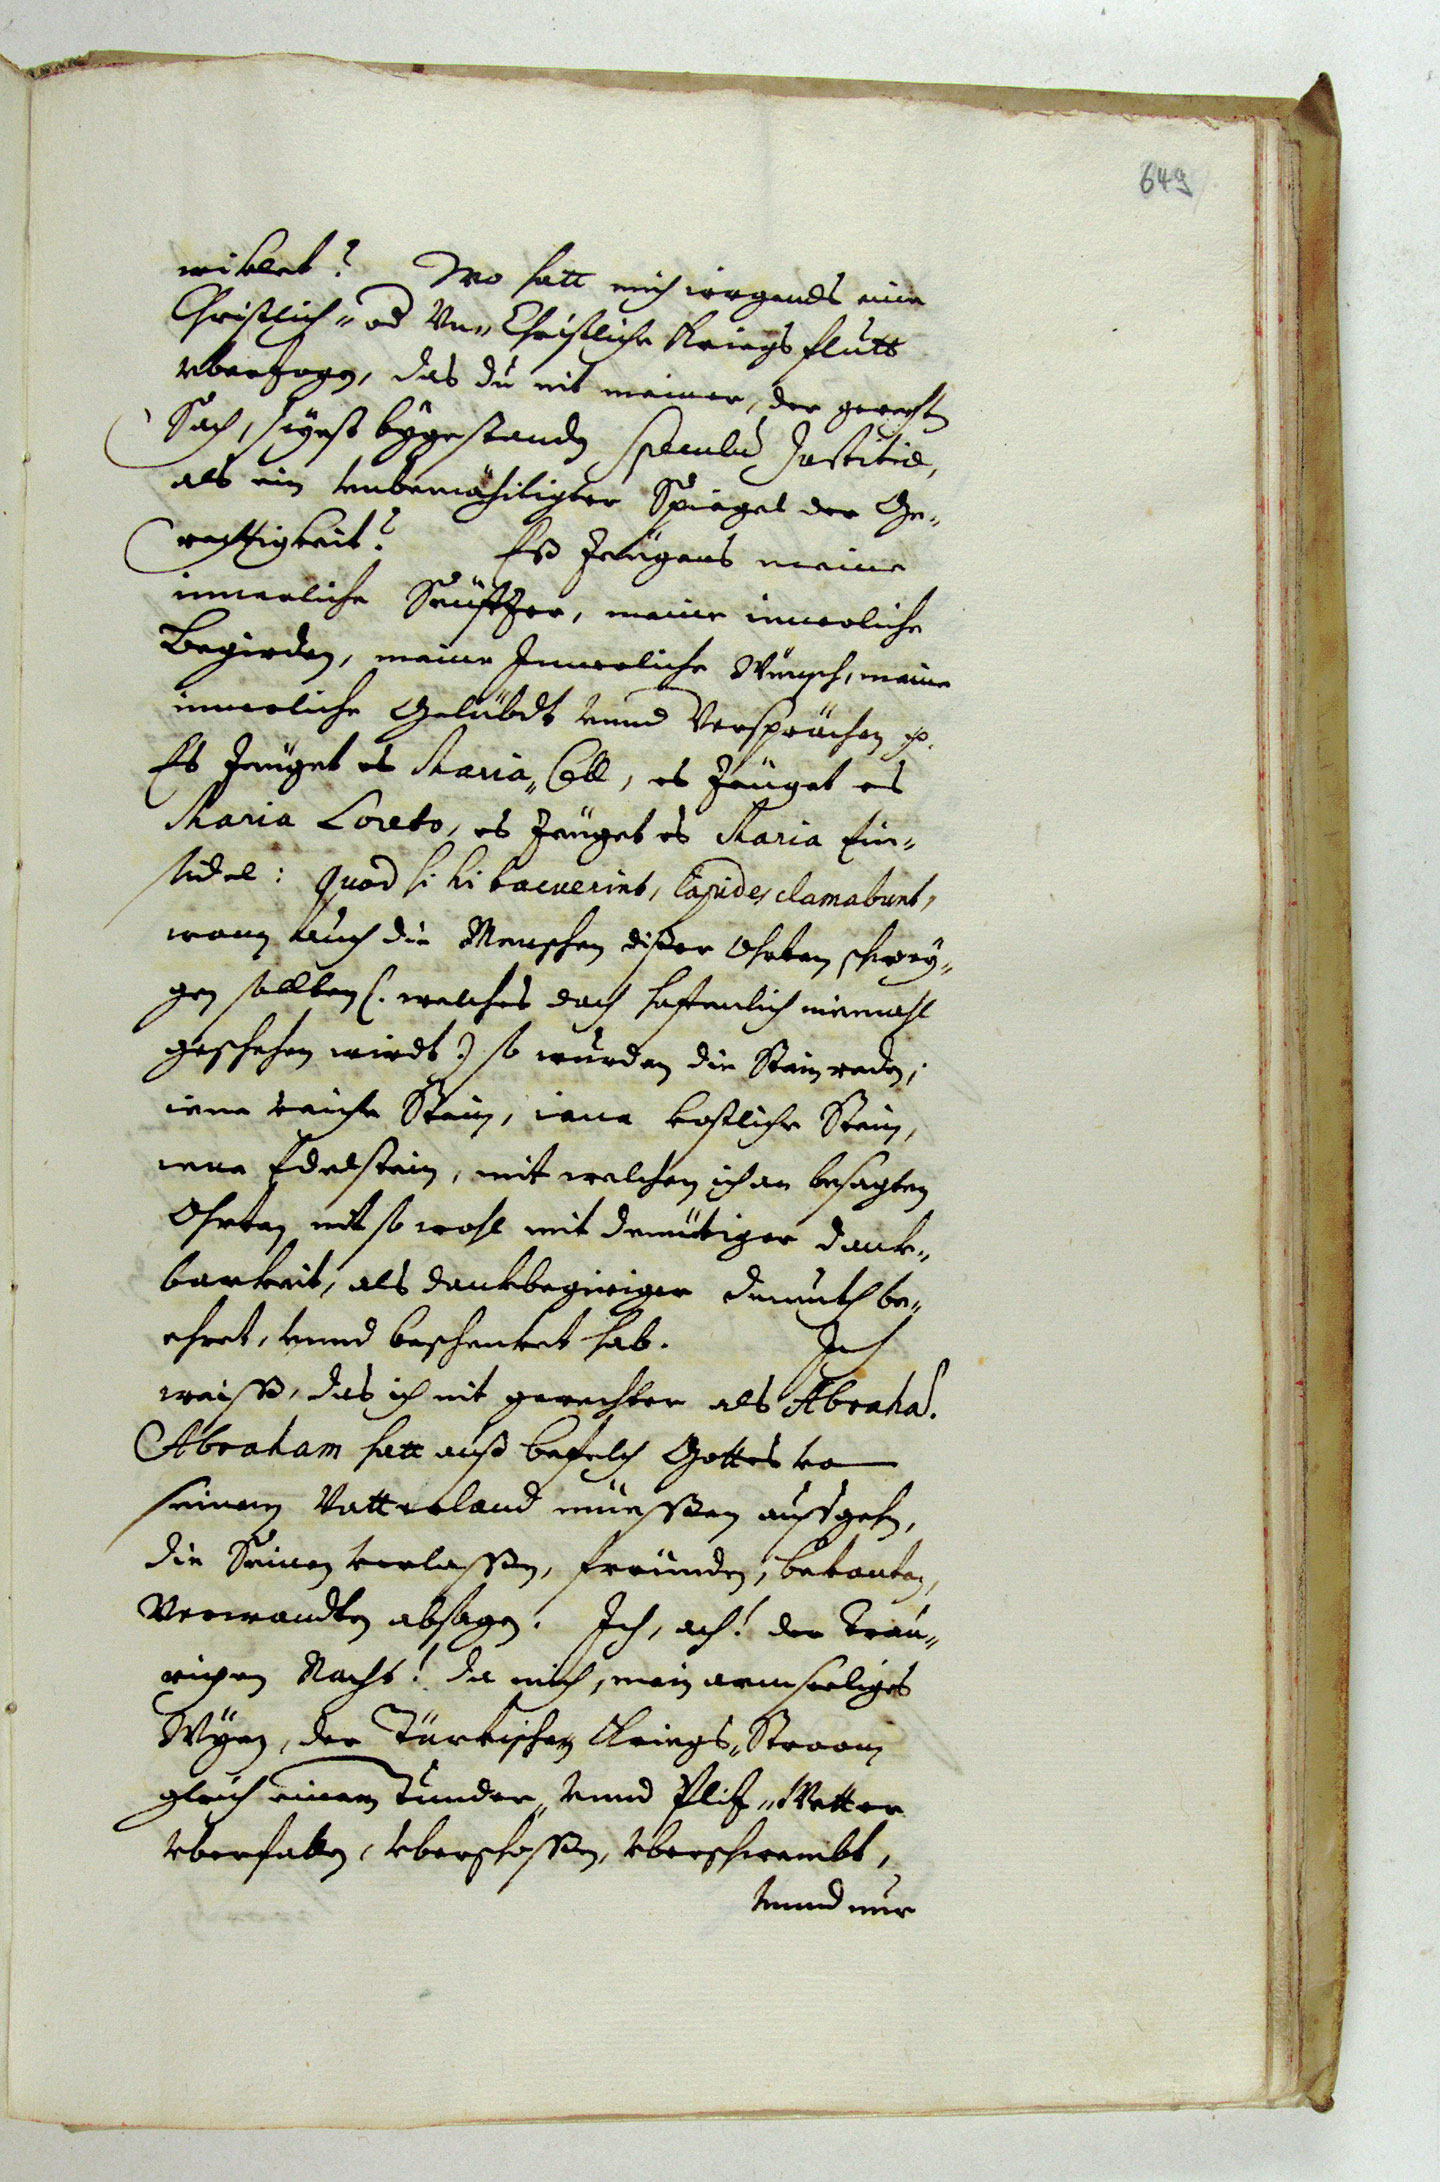 649
wiklet? Wo hatt mich irgends eine
Christlich- od Un-Christliche Kriegs flutt
uberzogen, das du nit meiner, der gerechten
Sach, seyest bygestanden speculu Justitiae,
als ein unbemähiligter Spiegel der Ge-
rechtigkeit? Eß zeügens meine
innerliche Seüfftzer, meine innerliche
Begirden, meine Innerliche Wünsch, meine
innerliche Gelübdt unnd Versprächen
Es zeüget es Maria-Cell, es zeüget es
Maria Loreto, es zeüget es Maria Ein-
sidel: quod si hi tacuerint, lapides clamabunt,
wann auch die Menschen diser Ohrten schwey-
gen sollten (: welches doch hoffenlich niemahl
geschehen wirdt :) so wurden die Stein reden;
iene reiche Stein, iene kostliche Stein,
iene Edelstein, mit welchen ich an besagten
Ohrten nit so wohl mit demütiger Dank-
barkeit, als dankbegiriger Demuth be-
ehret, unnd beschenket hab. Ich
weiß, das ich nit gerechter als Abraha.
Abraham hatt auß befelch Gottes von
seinem Vatterland müessen außgehn,
die Seinen verlassen, freünden, bekanten,
Verwandten absagen. Ich, ach! der trau-
rigen Nacht! da mich, mein armseeliges
Wyen, der Türkischen Kriegs-Stroom
gleich einem Tunder- unnd Plitz-Wetter
uberfallen, uberschossen, uberschwembt,
unnd nur